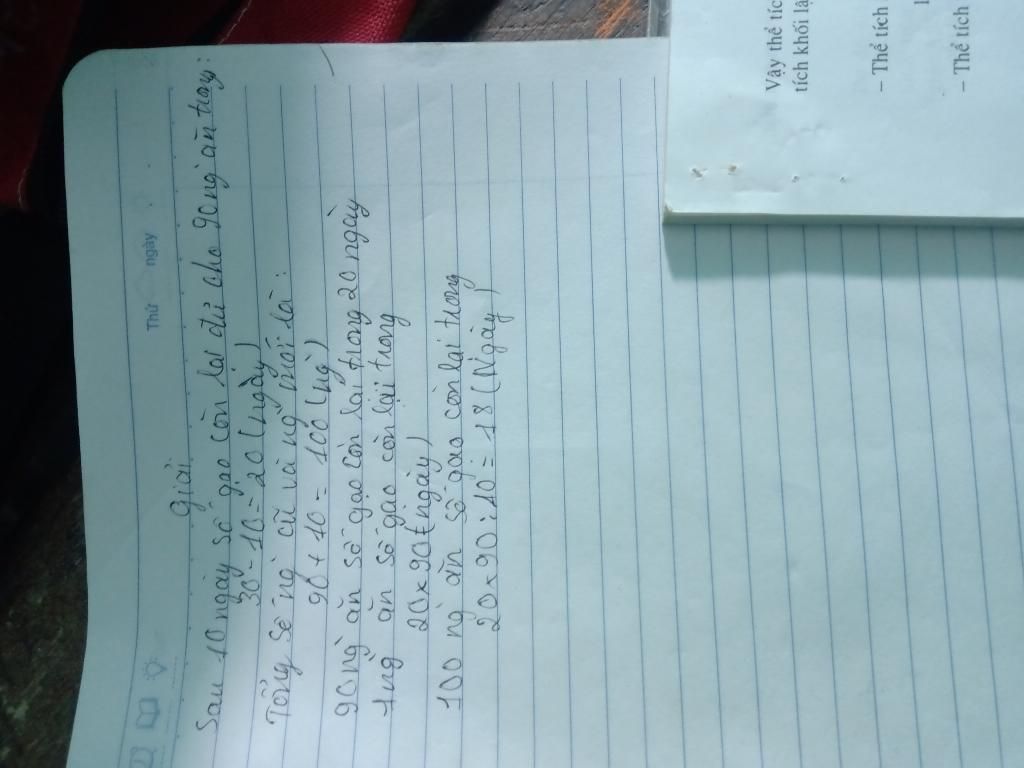 Thứ ngày
giải
Sau 10 ngày số gạo còn lại đủ cho 90 ng` ăn trong:
30 - 10 = 20 (ngày)
Tổng số ng` cũ và ng` mới là:
90 + 10 = 100 (ng`)
90 ng` ăn số gạo còn lại trong 20 ngày
1 ng` ăn số gạo còn lại trong
20 x 90 (ngày)
100 ng` ăn số gạo còn lại trong
20 x 90 : 10 = 18 (Ngày)
Vậy thể tíc
tích khối lậ
– Thể tích
– Thể tích